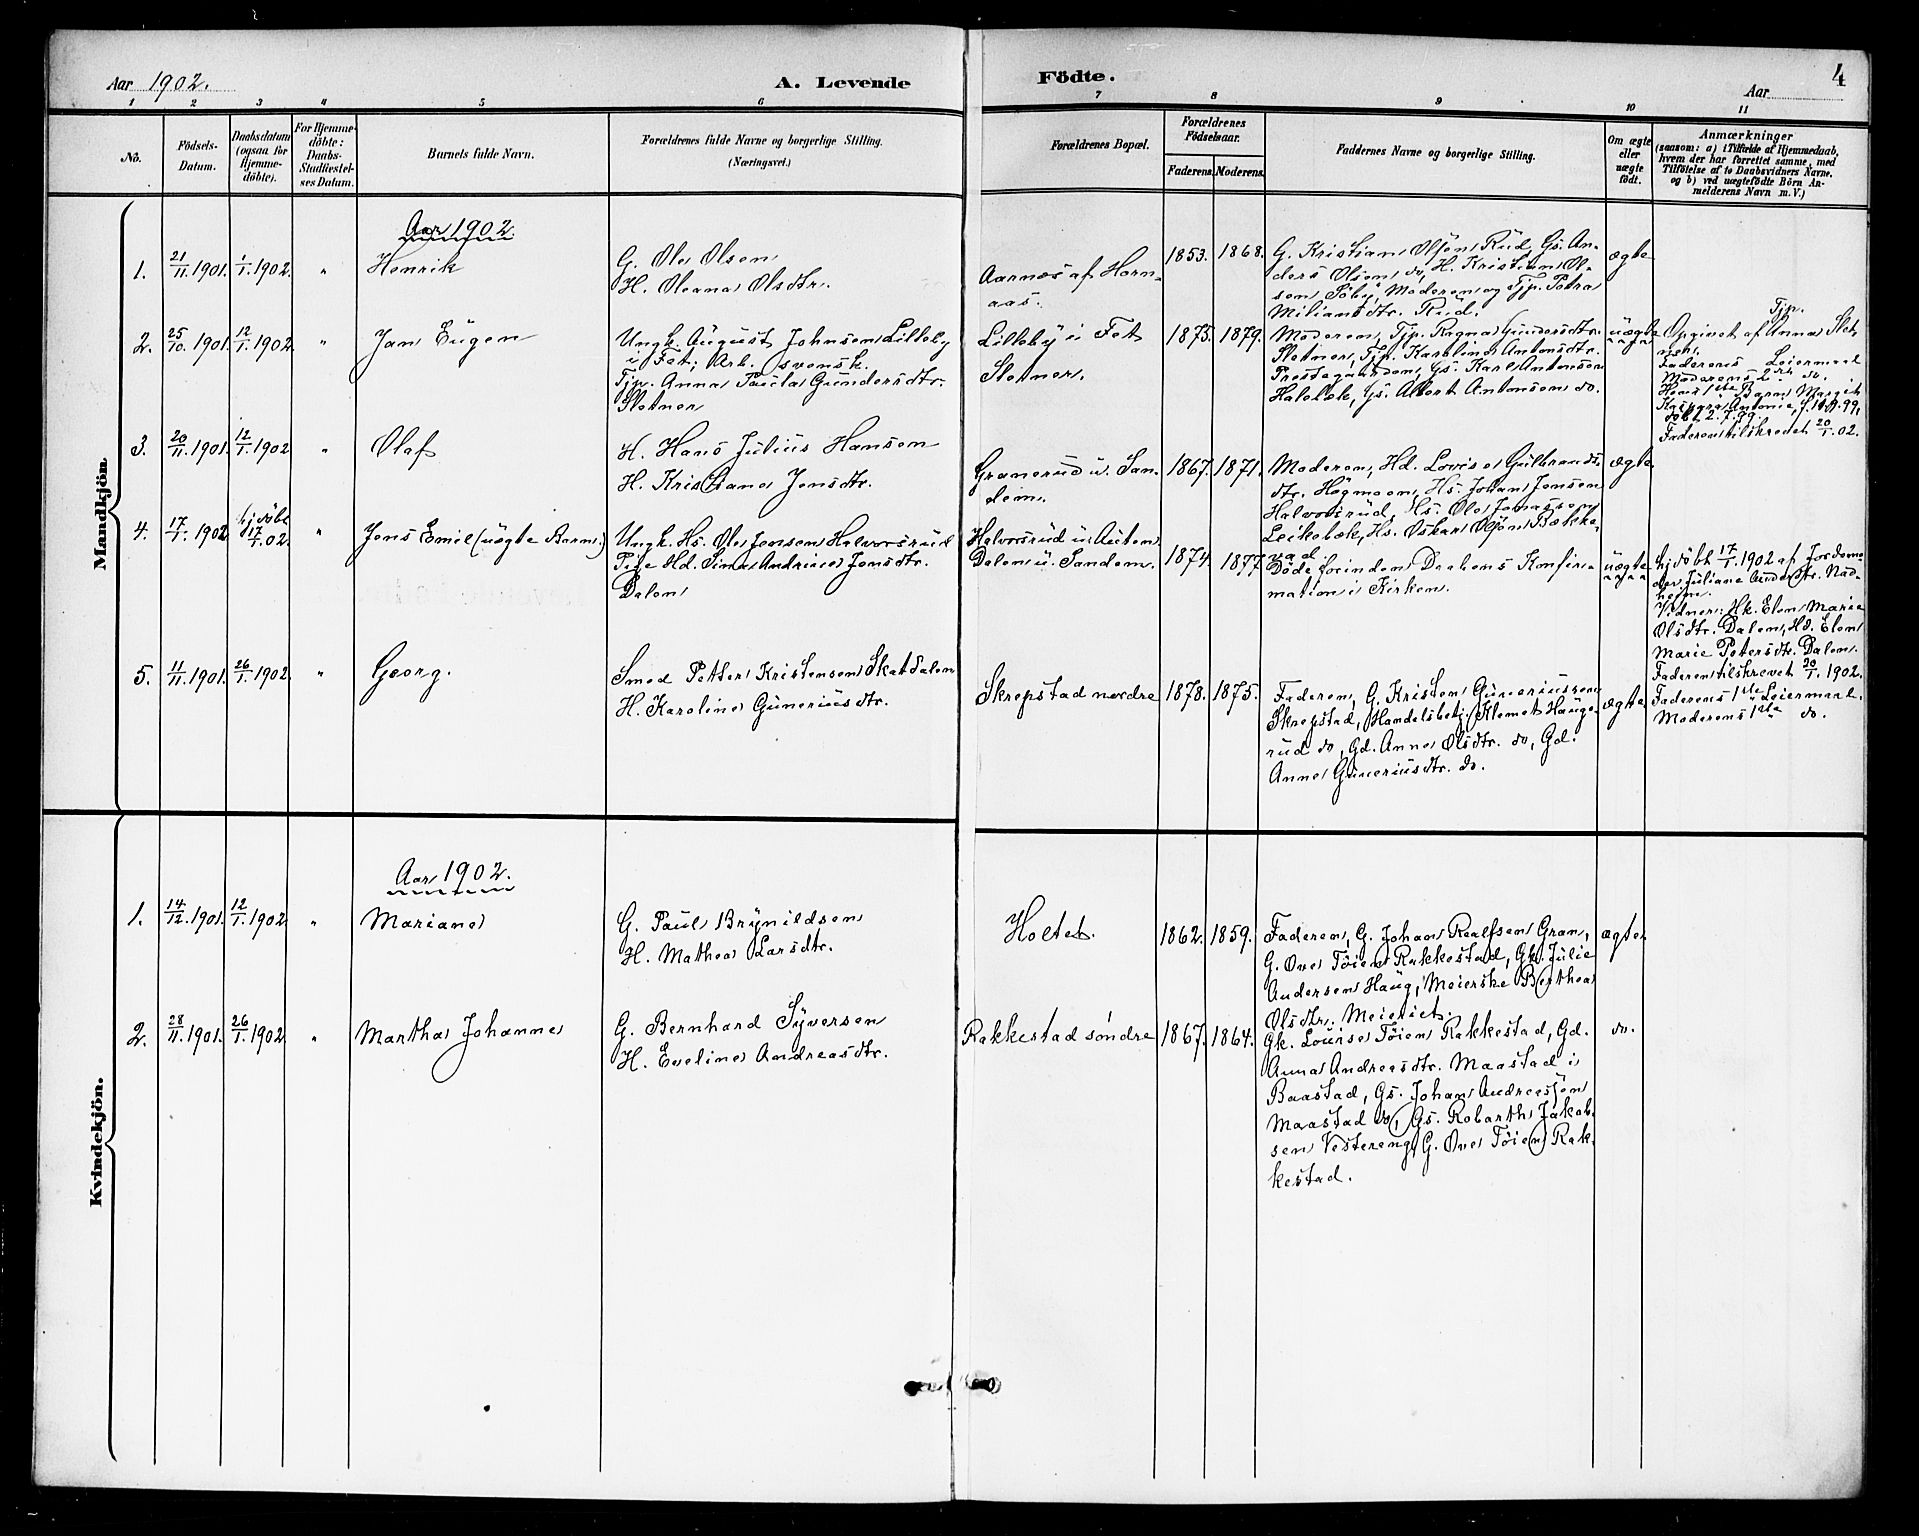 Aar 1902.
A. Levende
Födte.
4
Aar
1 2 3 4 5 6 7 8 9 10 11
No.
Födsels-
Datum.
Daabsdatum
(ogsaa for
Hjemme-
döbte).
For Hjemme-
döbte:
Daabs-
Stadfæstel-
ses Datum.
Barnets fulde Navn.
Forældrenes fulde Navne og borgerlige Stilling.
(Næringsvei.)
Forældrenes Bopæl.
Forældrenes
Födselsaar.
Faderens. Moderens.
Faddernes Navne og borgerlige Stilling.
Om ægte
eller
uægte
født.
Anmærkninger
(saasom: a) i Tilfælde af Hjemmedaab,
hvem der har forrettet samme, med
Tilføielse af to Daabsvidners Navne.
og b) ved uægtefødte Börn An-
melderens Navn m. V.)
Mandkjön.
Aar 1902.
1. 21/11 1901. 1/1 1902. " Henrik
G. Ole Olsen
H. Oleana Olsdtr.
Aarnæs af Horn-
aas.
1853. 1868.
G. Kristian Olsen Rud, Gs. An-
ders Olsen do, H. Kristian Ol-
sen Söby, Moderen og Tjp. Petra
Miliamsdtr. Rud.
ægte
2. 25/10 1901. 12/1 1902. " Jan Eugen
Ungk. August Johnsen Lilleby
i Fet; Arb. svensk.
Tjp. Anna Paula Gundersdtr.
Sletner
Lilleby i Fet
Sletner.
1875. 1879.
Moderen, Tjp. Ragna Gundersdtr.
Sletner, Tjp. Karoline Antonsdtr.
Prestegaarden, Gs. Karl Antonsen
Haleløk, Gs. Albert Antonsen do.
uægte
Tjp.
Opgivet af Anna Slet-
ner.
Faderens Leiermaal
Moderens 2det do.
Hens 1ste Barn Margit
Kaspara Antonie, f. 11.99,
döbt 2.7.99.
Faderen tilskrevet 20/1.02.
3. 20/11 1901. 12/1 1902 " Olaf
H. Hans Julius Hansen
H. Kristiane Jensdtr.
Granerud u. San-
dem.
1867. 1871.
Moderen, Hd. Lovise Gulbrands-
dtr. Högmoen, Hs. Johan Jensen
Halvorsrud, Hs. Ole Jonassen
Leikebæk, Hs. Oskar Olsen Bække-
vad.
ægte
4. 17/1 1902 hj.döbt 17/1.02. " Jens Emil (uægte Barn.)
Ungk. Hs. Ole Jensen Halvorsrud
Pige Hd. Sina Andrine Jensdtr.
Dalen
Halvorsrud u. Auten
Dalen u. Sandem.
1874. 1877
Döde forinden Daabens Konfir-
mation i Kirken.
uægte
hj.döbt 17/1 1902 af Jordemo-
der Juliane Andersdtr. Nad-
heim.
Vidner: Hk. Elen Marie
Olsdtr. Dalen, Hd. Elen
Marie Petersdtr. Dalen.
Faderen tilskrevet 20/1. 1902.
Faderens 1ste Leiermaal.
Moderens 1ste do.
5. 11/11 1901. 26/1 1902. " Georg.
Smed Petter Kristensen Skatdalen
H. Karoline Guneriusdtr.
Skrepstad nordre
1878. 1875.
Faderen, G. Kristen Guneriussen
Skrepstad, Handelsbetj. Klemet Hauge-
rud do, Gd. Anne Olsdtr. do, Gd.
Anne Guneriusdtr. do.
ægte
Kvindekjön.
Aar 1902.
1. 14/12 1901. 12/1 1902. " Mariane
G. Paul Brynildsen
H. Mathea Larsdtr.
Holtet.
1862. 1859.
Faderen, G. Johan Realfsen Gran,
G. Ove Töien Rakkestad, Gk. Julie
Andersen Haug, Meierske Berthea
Olsdtr. Meieriet.
ægte
2. 28/11 1901. 26/1 1902 " Martha Johanne
G. Bernhard Syversen
H. Eveline Andreasdtr.
Rakkestad søndre
1867. 1864.
Gk. Lourse Töien Rakkestad, Gd.
Anna Andreasdtr. Maastad i
Baastad, Gs. Johan Andreassen
Maastad do, Gs. Robarth Jakob-
sen Vestereng, G. Ove Töien Rak-
kestad.
do.